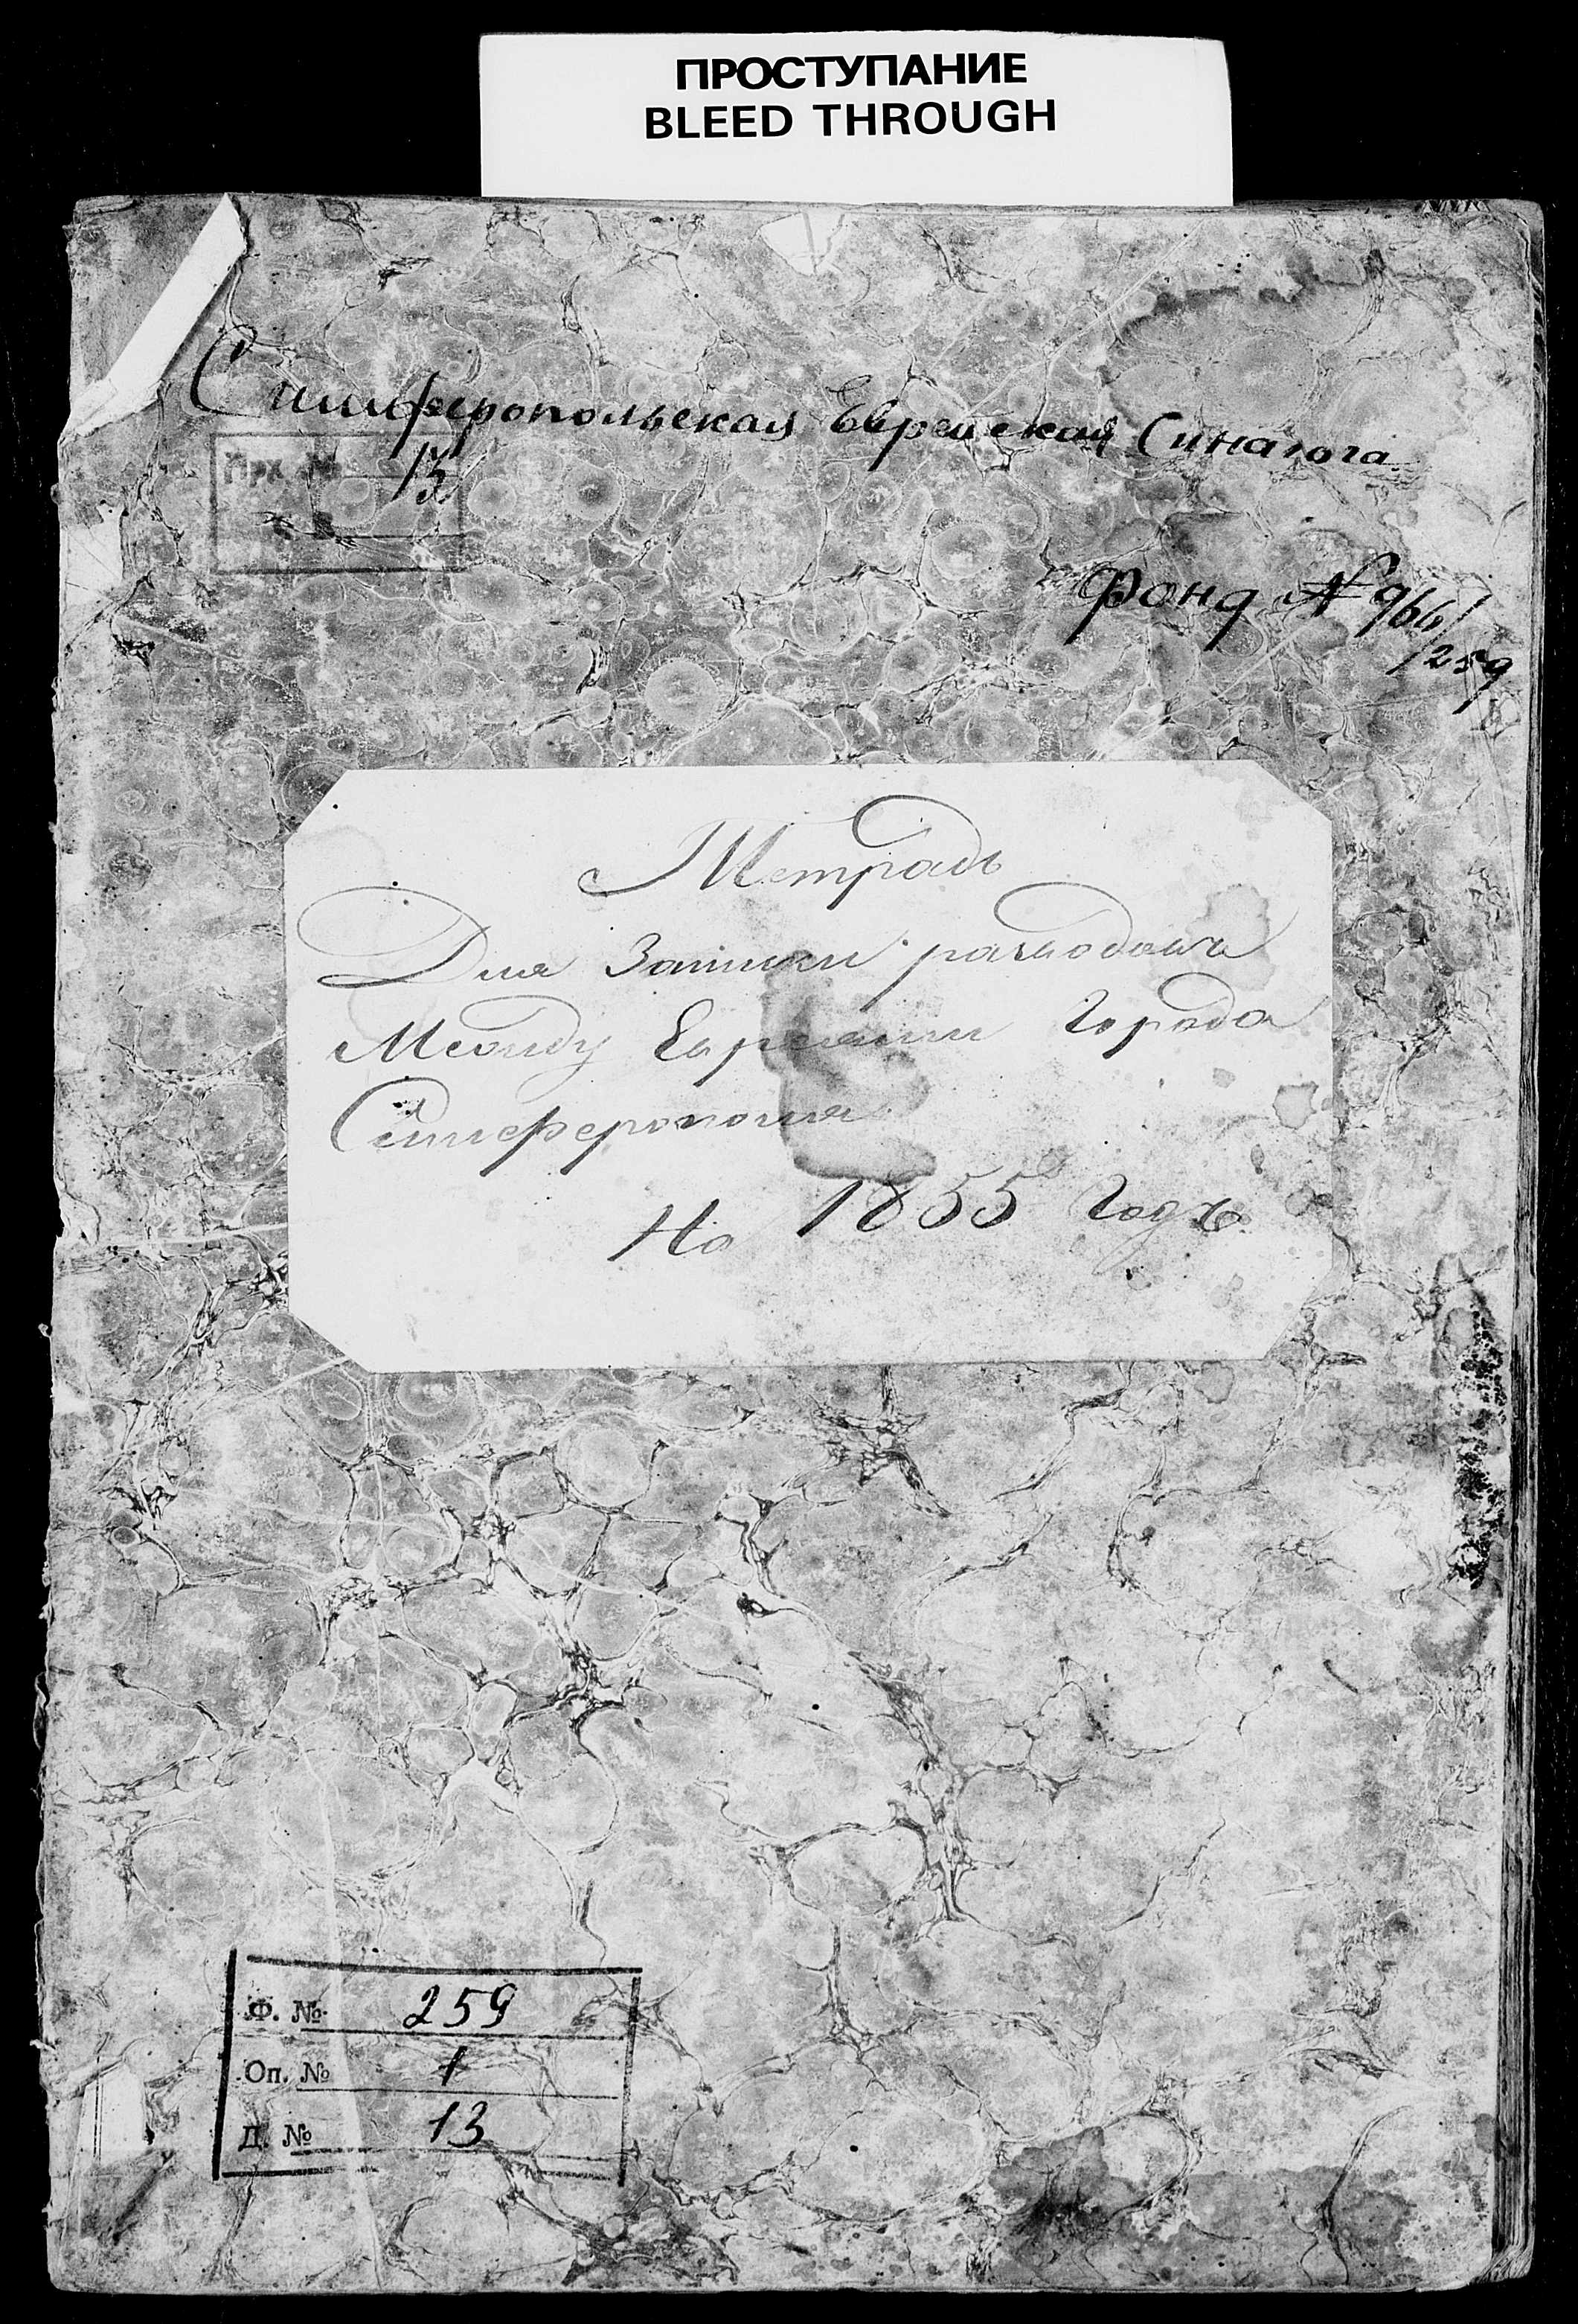 ПРОСТУПАНИЕ
BLEED THROUGH
Симферопольская Еврейская Синагога
Арх. № 13
Фонд № 966/
259
Тетрадь
Для Записки разводовъ
Между Евреями Города
Симферополя
На 1855 Годъ
Ф. № 259
Оп. № 1
Д. № 13